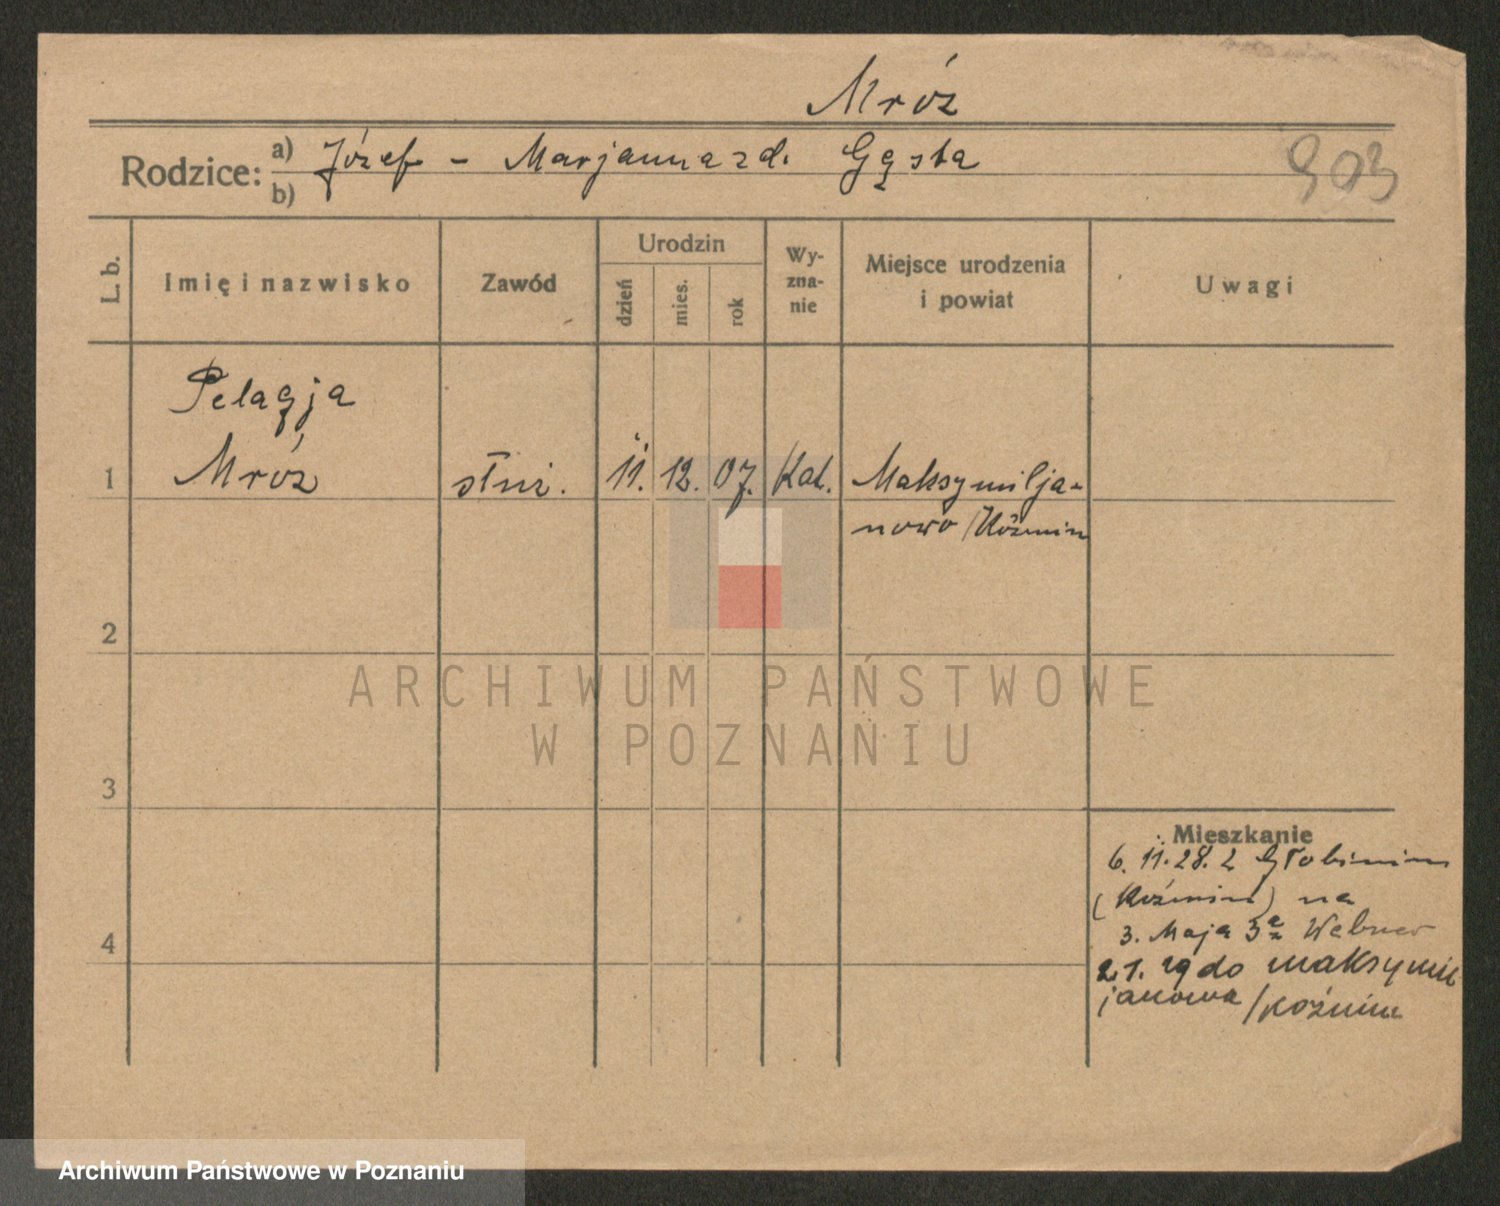 Mróz
Rodzice: a) Józef - Marjanna zd. Gęsta
b)
903
L. b. Imię i nazwisko Zawód Urodzin dzień mies. rok Wy-zna-nie Miejsce urodzenia i powiat Uwagi
Pelagja
1 Mróz służ. 11. 12. 07. Kat. Maksymilja-
nowo /Koźmin
2
3
Mieszkanie
6. 11. 28. z
(Koźmin) na
3. Maja 3a z Webner
4
2.1. 29 do Maksymil
janowa /Koźmin
ARCHIWUM PAŃSTWOWE
W POZNANIU
Archiwum Państwowe w Poznaniu